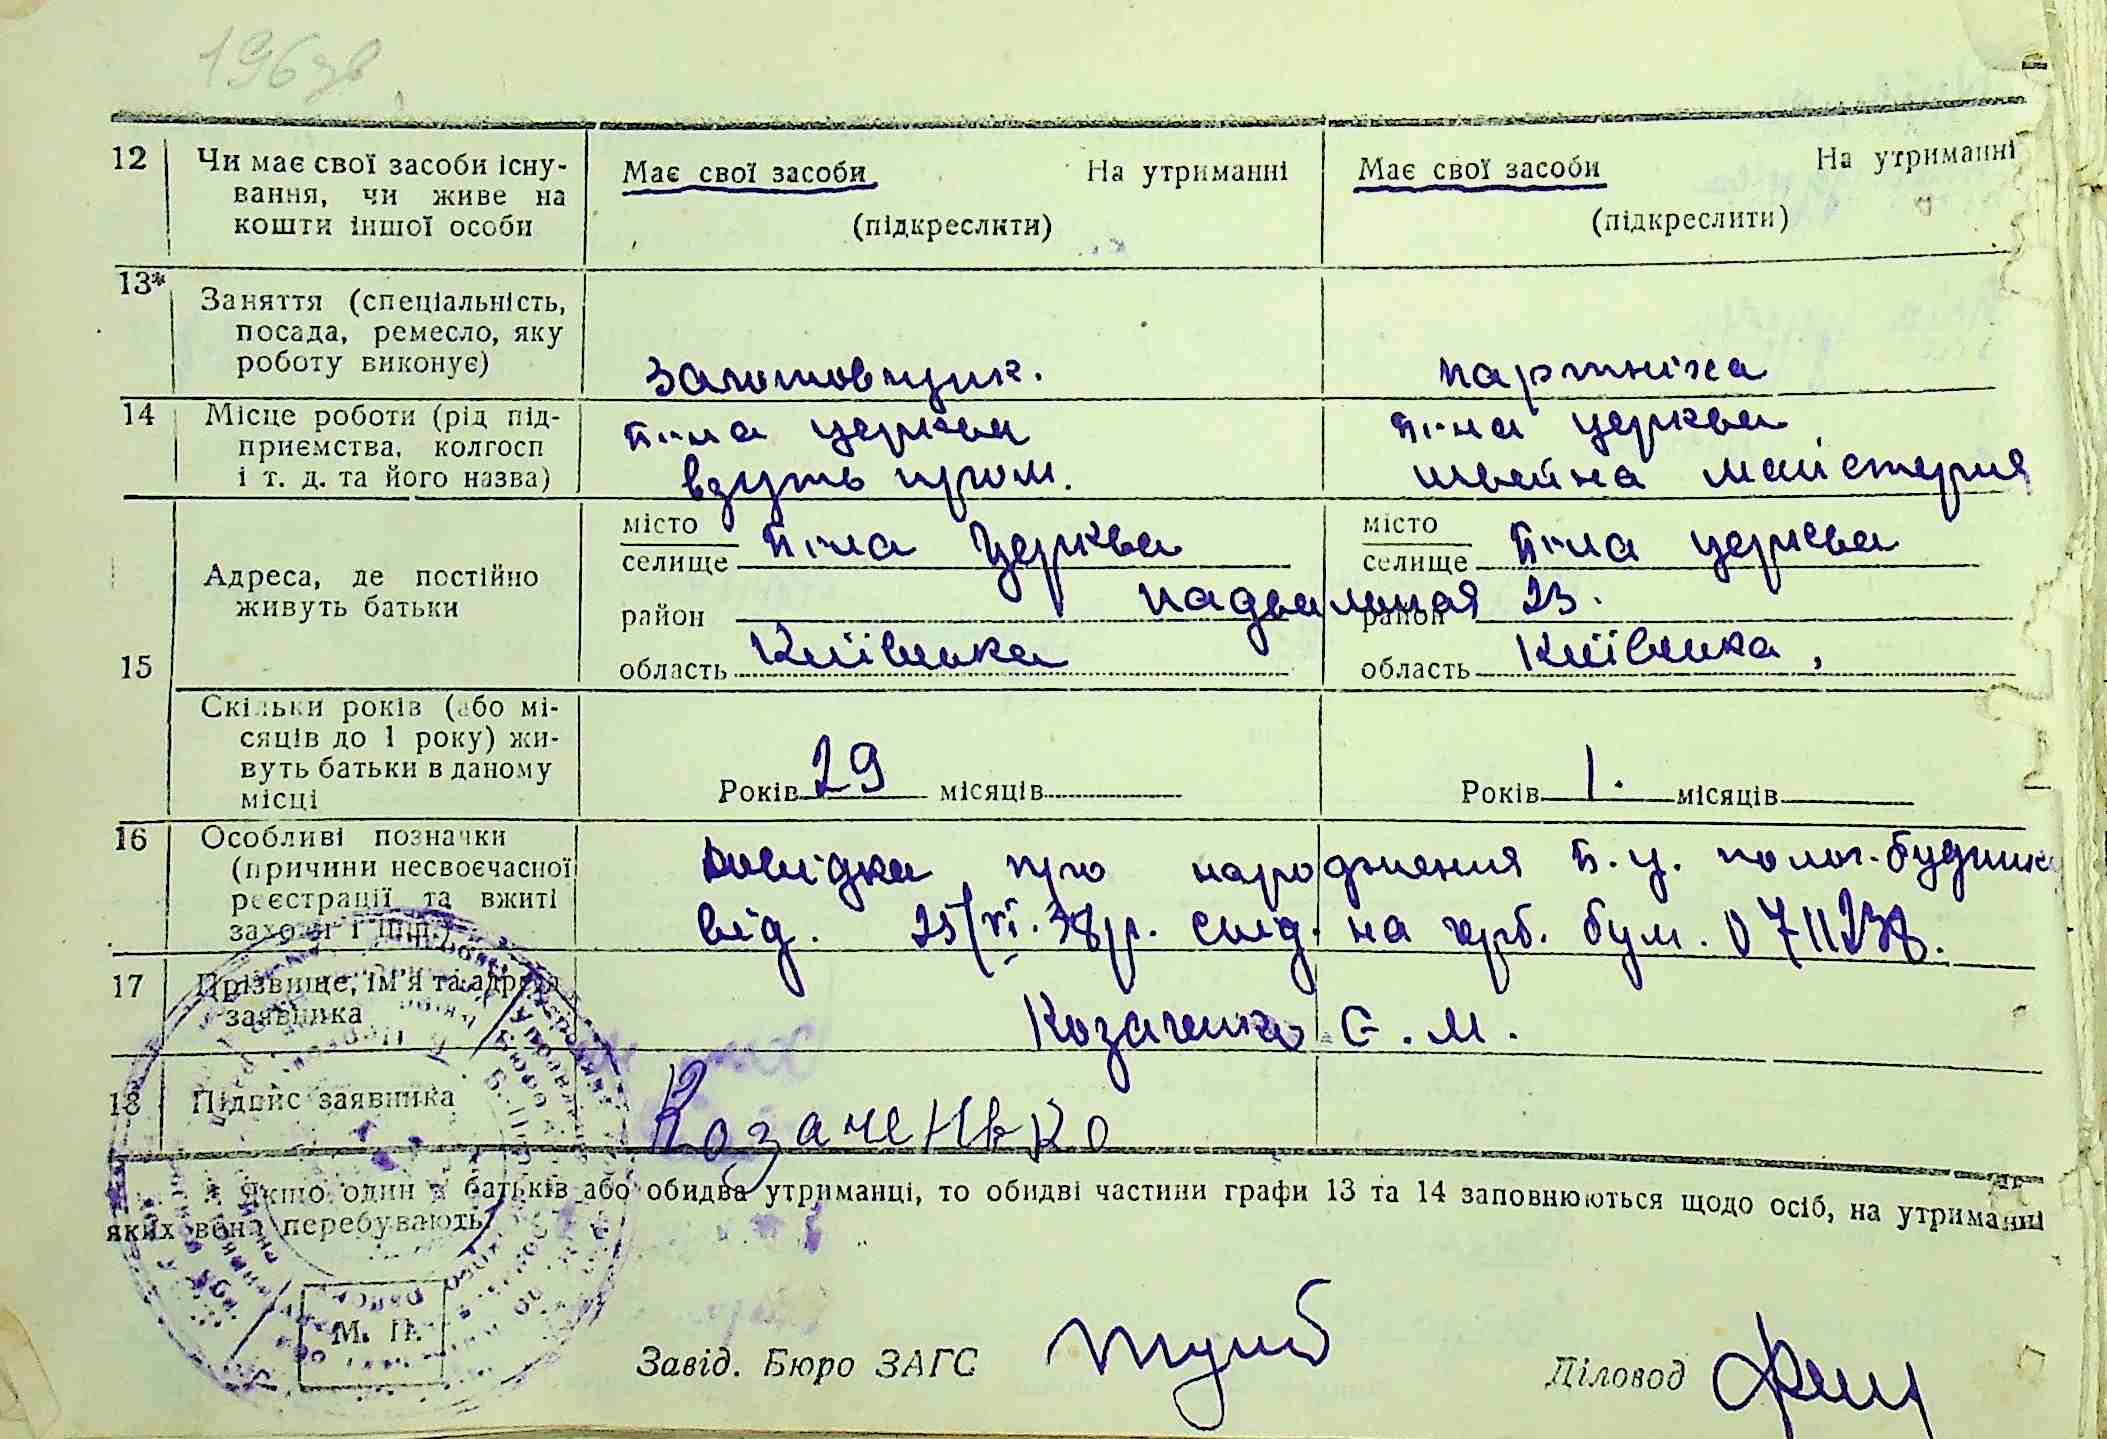 196 зв
12 Чи має свої засоби існу-
вання, чи живе на
кошти іншої особи
Має свої засоби На утриманні
(підкреслити)
Має свої засоби На утриманні
(підкреслити)
13* Заняття (спеціальність,
посада, ремесло, яку
роботу виконує)
Заготовщик.
партніха
14 Місце роботи (рід під-
приємства, колгосп
і т. д. та його назва)
Біла церква
взуть пром.
Біла церква
швейна майстерня
15 Адреса, де постійно
живуть батьки
місто
селище Біла Церква
район
область Київська
місто
селище Біла церква
район
область Київська,
надвальная 23.
Скільки років (або мі-
сяців до 1 року) жи-
вуть батьки в даному
місці
Років 29 місяців
Років 1. місяців
16 Особливі позначки
(причини несвоєчасної
реєстрації та вжиті
заходи і інш.)
довідка про народження Б.Ц. полог. будинку
від. 25/VI.38р. свід. на герб. бум. 0711238.
17 Прізвище, ім'я та адреса
заявника
Козаченко С. М.
18 Підпис заявника
Козаченько
* Якщо один з батьків або обидва утриманці, то обидві частини графи 13 та 14 заповнюються щодо осіб, на утриманні
яких вона перебувають.
М. П.
Завід. Бюро ЗАГС
Діловод